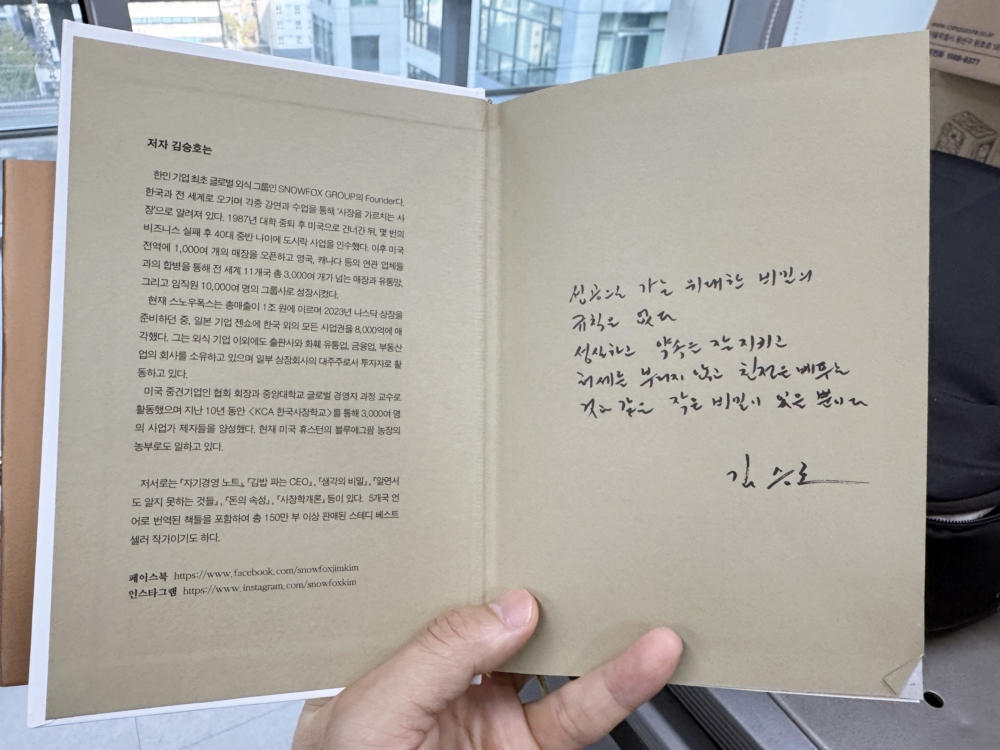 저자 김승호는
한인 기업 최초 글로벌 외식 그룹인 SNOWFOX GROUP의 Founder다.
한국과 전 세계로 오가며 각종 강연과 수업을 통해 '사장을 가르치는 사
장'으로 알려져 있다. 1987년 대학 중퇴 후 미국으로 건너간 뒤, 몇 번의
비즈니스 실패 후 40대 중반 나이에 도시락 사업을 인수했다. 이후 미국
전역에 1,000여 개의 매장을 오픈하고 영국, 캐나다 등의 연관 업체들
과의 합병을 통해 전 세계 11개국 총 3,000여 개가 넘는 매장과 유통망,
그리고 임직원 10,000여 명의 그룹사로 성장시켰다.
현재 스노우폭스는 총매출이 1조 원에 이르며 2023년 나스닥 상장을
준비하던 중, 일본 기업 젠쇼에 한국 외의 모든 사업권을 8,000억에 매
각했다. 그는 외식 기업 이외에도 출판사와 화훼 유통업, 금융업, 부동산
업의 회사를 소유하고 있으며 일부 상장회사의 대주주로서 투자자로 활
동하고 있다.
미국 중견기업인 협회 회장과 중앙대학교 글로벌 경영자 과정 교수로
활동했으며 지난 10년 동안 <KCA 한국사장학교>를 통해 3,000여 명
의 사업가 제자들을 양성했다. 현재 미국 휴스턴의 블루에그팜 농장의
농부로도 일하고 있다.
저서로는 『자기경영 노트』, 『김밥 파는 CEO』, 『생각의 비밀』, 『알면서
도 알지 못하는 것들』, 『돈의 속성』, 『사장학개론』 등이 있다. 5개국 언
어로 번역된 책들을 포함하여 총 150만 부 이상 판매된 스테디 베스트
셀러 작가이기도 하다.
페이스북 https://www.facebook.com/snowfoxjimkim
인스타그램 https://www.instagram.com/snowfoxkim
성공으로 가는 위대한 비밀의
규칙은 없다
성실하고 약속을 잘 지키고
허세는 부리지 않고 친절을 베푸는
것과 같은 작은 비밀이 있을 뿐이다
김승호
www.compuzone.co.kr
1588-8377